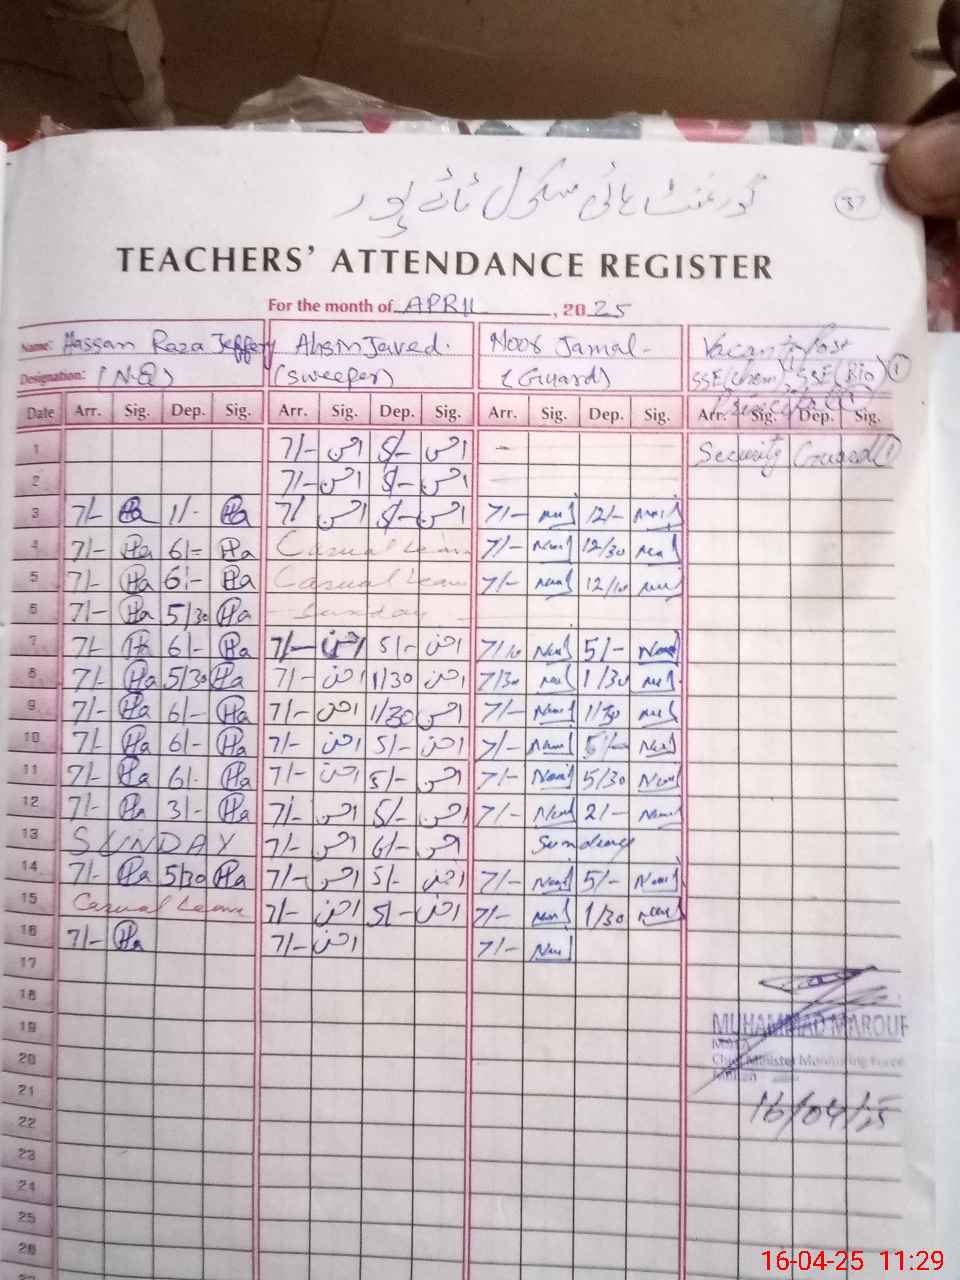 گورنمنٹ ہائی سکول
37
TEACHERS' ATTENDANCE REGISTER
For the month of APRIL, 2025
Name: Hassan Raza Jeffery Ahsin Javed. Noor Jamal- Vacant Post
Designation: (N.Q) (Sweeper) (Guard) SSE(Chem) SSE(Bio) 1
Date Arr. Sig. Dep. Sig. Arr. Sig. Dep. Sig. Arr. Sig. Dep. Sig. Arr. Sig. Dep. Sig.
1 7/- احسن 5/- احسن Security Guard 1
2 7/- احسن 5/- احسن
3 7/- Ha 1/- Ha 7/ احسن 5/- احسن 7/- 12/-
4 7/- Ha 6/= Ha Casual Leave 7/- 12/30
5 7/- Ha 6/- Ha Casual Leave 7/- 12/10
6 7/- Ha 5/30 Ha Sunday
7 7/- Ha 6/- Ha 7/- احسن 5/- احسن 7/10 5/-
8 7/- Ha 5/30 Ha 7/- احسن 1/30 احسن 7/30 1/30
9 7/- Ha 6/- Ha 7/- احسن 1/30 احسن 7/- 1/30
10 7/- Ha 6/- Ha 7/- احسن 5/- احسن 7/- 5/-
11 7/- Ha 6/- Ha 7/- احسن 5/- احسن 7/- 5/30
12 7/- Ha 3/- Ha 7/- احسن 5/- احسن 7/- 2/-
13 SUNDAY 7/- احسن 6/- احسن Sunday
14 7/- Ha 5/30 Ha 7/- احسن 5/- احسن 7/- 5/-
15 Casual Leave 7/- احسن 5/- احسن 7/- 1/30
16 7/- Ha 7/- احسن 7/-
17
18
19 MUHAMMAD MAROUF
20 Chief Minister Monitoring Force
21
22 16/04/25
23
24
25
26
27
16-04-25 11:29